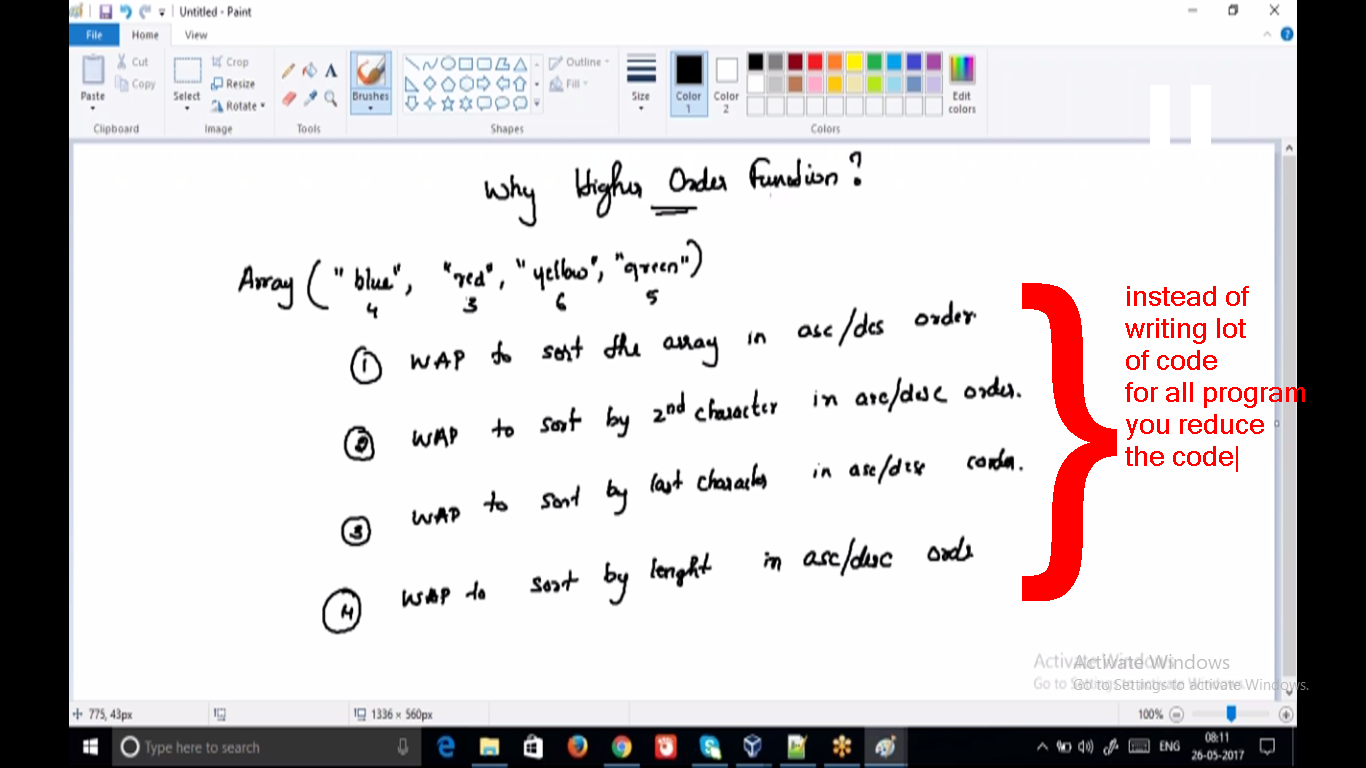 Untitled - Paint
File Home View
Cut
Copy
Paste
Clipboard
Crop
Resize
Rotate
Select
Image
Tools
Brushes
Outline
Fill
Shapes
Size
Color 1
Color 2
Edit colors
Colors
Why Higher Order Function?
Array ("blue", "red", "yellow", "green")
4 3 6 5
1 WAP to sort the array in asc/des order.
2 WAP to sort by 2nd character in asc/desc order.
3 WAP to sort by last character in asc/desc
4 WAP to sort by lenght in asc/desc orde
instead of
writing lot
of code
for all program
you reduce
the code
Activate Windows
Go to Settings to activate Windows.
775, 43px
1336 × 560px
100%
Type here to search
ENG
08:11
26-05-2017